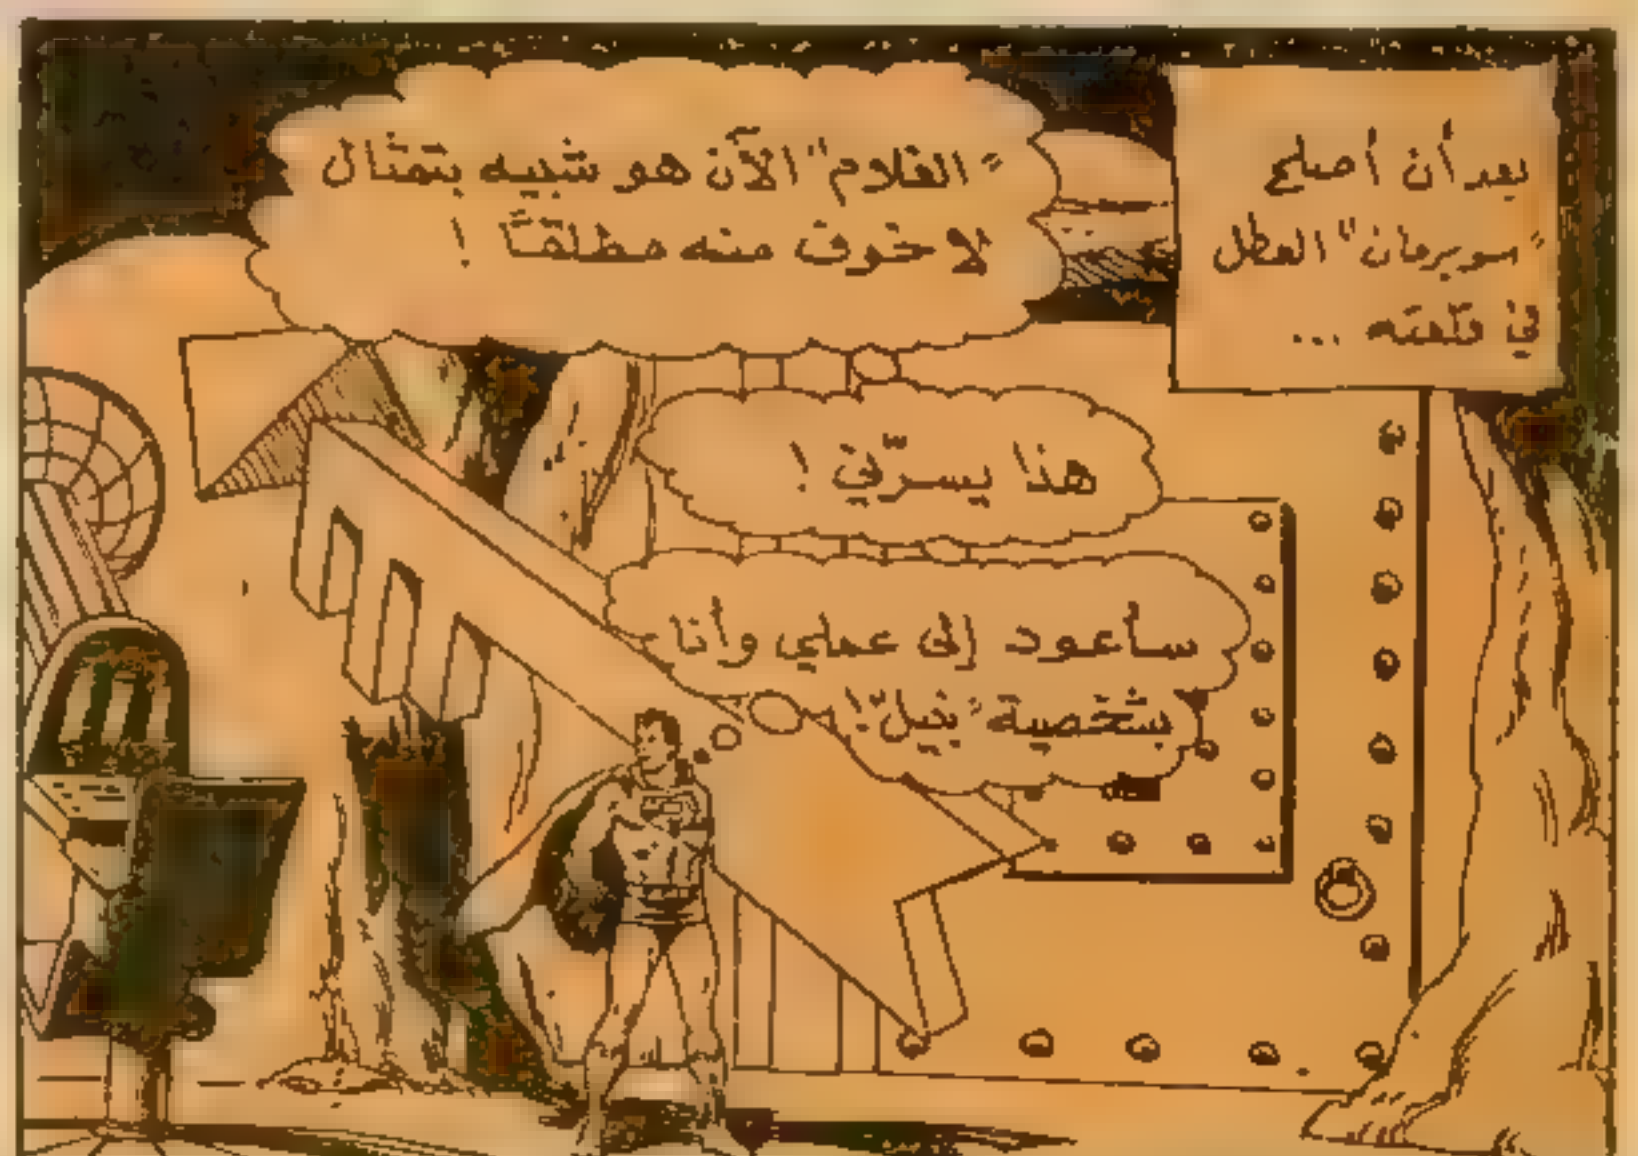 بعد أن أصلح
"سوبرمان" العطل
في قلعته ...
"الغلام" الآن هو شبيه بتمثال
لا خوف منه مطلقاً !
هذا يسرّني !
سأعود إلى عملي وأنا
بشخصية "نبيل"!